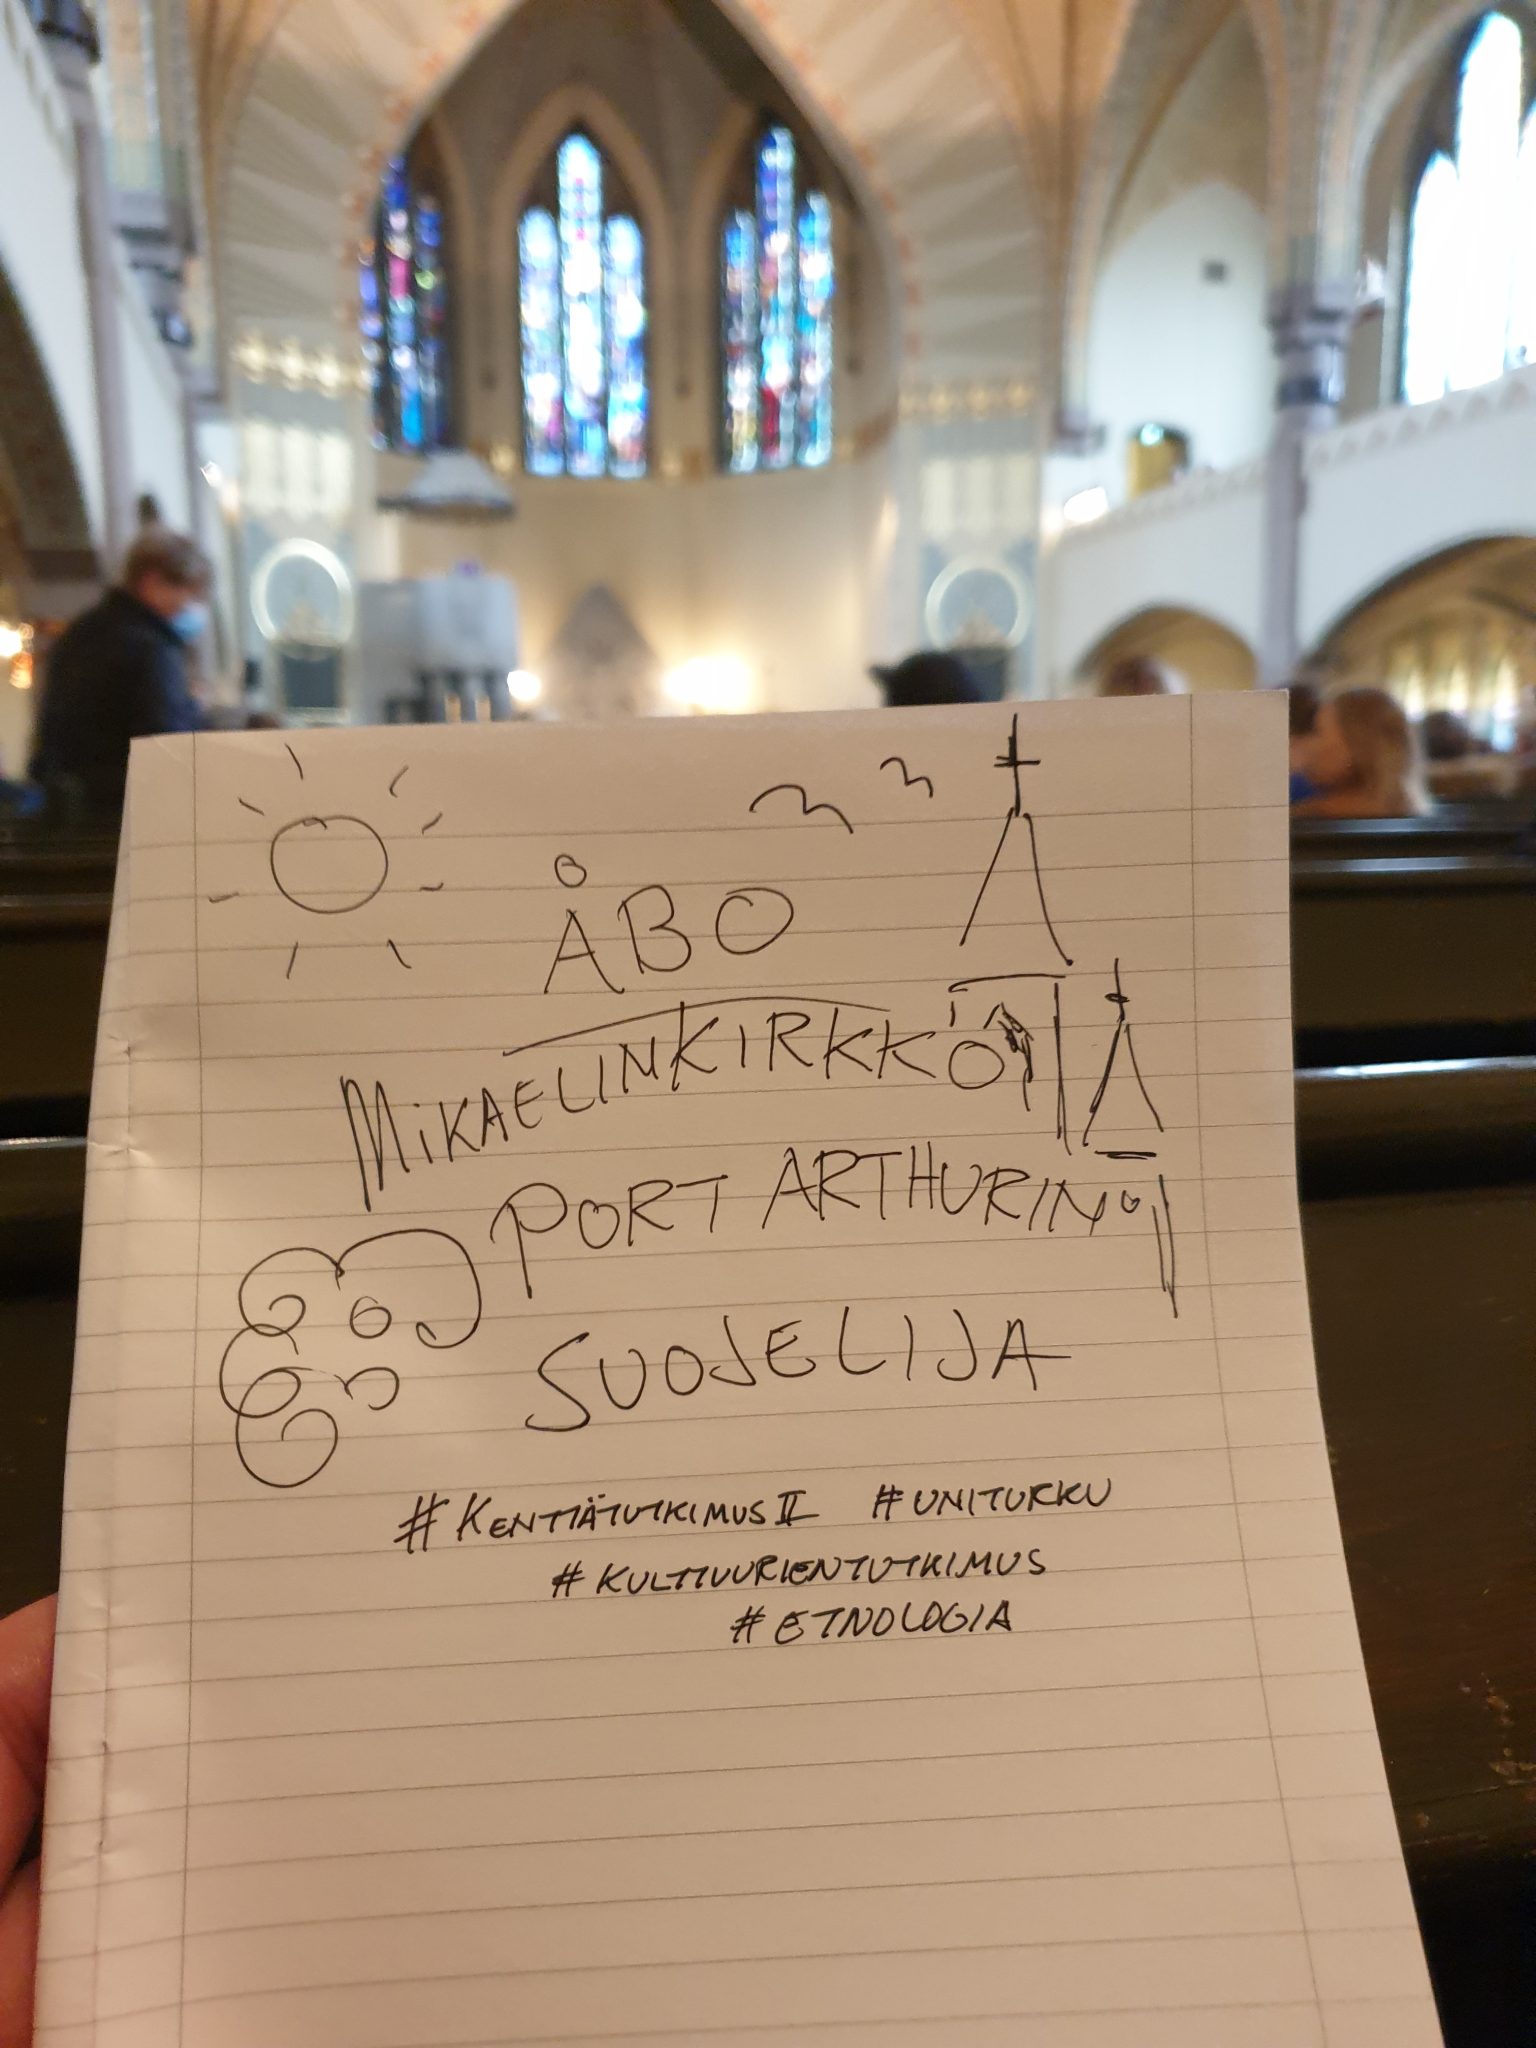 ÅBO
MIKAELINKIRKKO
PORT ARTHURIN
SUOJELIJA
#KENTTÄTUTKIMUS II #UNITURKU
#KULTTUURIENTUTKIMUS
#ETNOLOGIA